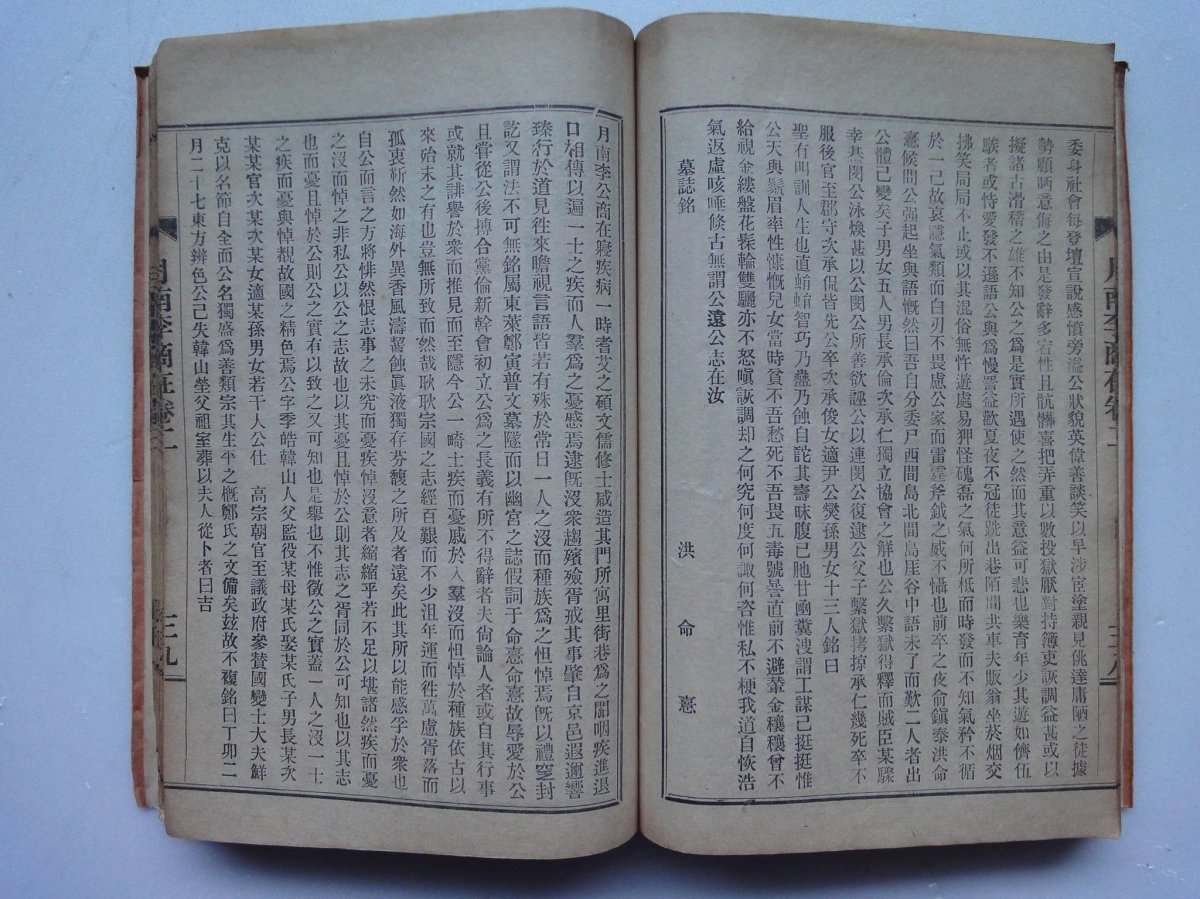 委身社會每登壇宣說感憤旁溢公狀貌英偉善談笑以早涉宦塗親見佻達庸陋之徒據
勢顧眄意侮之由是發辭多宕性且骯髒喜把弄重以數投獄厭對持簿吏詼調益甚或以
擬諸古滑稽之雄不知公之爲是實所遇使之然而其意益可悲也樂育年少其遊如儕伍
騃者或恃愛發不遜語公與爲慢詈益歡夏夜不冠徒跣出巷陌間共車夫販翁坐菸烟交
拂笑局局不止或以其混俗無忤遊處易狎怪磈磊之氣何所柢而時發而不知氣矜不循
於一己故哀隱氣類而白刃不畏慮公家而雷霆斧鉞之威不懾也前卒之夜俞鎭泰洪命
憙候問公强起坐與語慨然曰吾自分委尸西間島北間島厓谷中語未了而歎二人者出
公體已變矣子男女五人男長承倫次承仁獨立協會之觧也公久繫獄得釋而賊臣某驟
幸其閔公泳煥甚以公閔公所善欲誣公以連閔公復逮公父子繫獄拷掠承仁幾死卒不
服後官至郡守次承侃皆先公卒次承俊女適尹公爕孫男女十三人銘曰
聖有叫訓人生也直蝻蝻智巧乃蠡乃蝕自詫其壽昧腹已胣甘凾糞溲謂工謀己挺挺惟
公天與鬚眉率性慷慨兒女當時貧不吾愁死不吾畏五毒號嘦直前不避輦金穰穰曾不
給視金縷盤花髹輪雙驪亦不怒嗔詼調却之何究何度何諏何咨惟私不梗我道自恢浩
氣返虛咳唾倏古無謂公遠公志在汝
墓誌銘　洪命憙
月南李公商在寢疾病一時耆艾之碩文儒修士咸造其門所寓里街巷爲之闐咽疾進退
口相傳以遍一士之疾而人羣爲之憂慼焉逮旣沒衆趨殯殮胥戒其事肇自京邑遐邇響
臻行於道見徃來瞻視言語皆若有殊於常日一人之沒而種族爲之怛悼焉旣以禮窆封
訖又謂法不可無銘屬東萊鄭寅普文墓隧而以幽宮之誌假詞于命憙命憙故辱愛於公
且甞從公後搏合黨倫新幹會初立公爲之長義有所不得辭者夫尙論人者或自其行事
或就其誹譽於衆而推見而至隱今公一畸士疾而憂戚於人羣沒而怛悼於種族依古以
來殆未之有也豈無所致而然哉耿耿宗國之志經百艱而不少沮年運而徃萬慮胥落而
孤衷斬然如海外異香風濤齧蝕眞液獨存芬馥之所及者遠矣此其所以能感乎於衆也
自公而言之方將悱然恨志事之未究而憂疾悼沒意者縮縮乎若不足以堪諸然疾而憂
之沒而悼之非私公以公之志故也以其憂且悼於公則其志之胥同於公可知也以其志
也而憂且悼於公則公之實有以致之又可知也是擧也不惟徵公之實蓋一人之沒一士
之疾而憂與悼覩故國之精色焉公字季皓韓山人父監役某母某氏娶某氏子男長某次
某某官次某次某女適某孫男女若干人公仕　高宗朝官至議政府參贊國變士大夫鮮
克以名節自全而公名獨盛爲善類宗其生平之槪鄭氏之文備矣玆故不複銘曰丁卯二
月二十七東方辨色公已失韓山塋父祖室葬以夫人從卜者曰吉